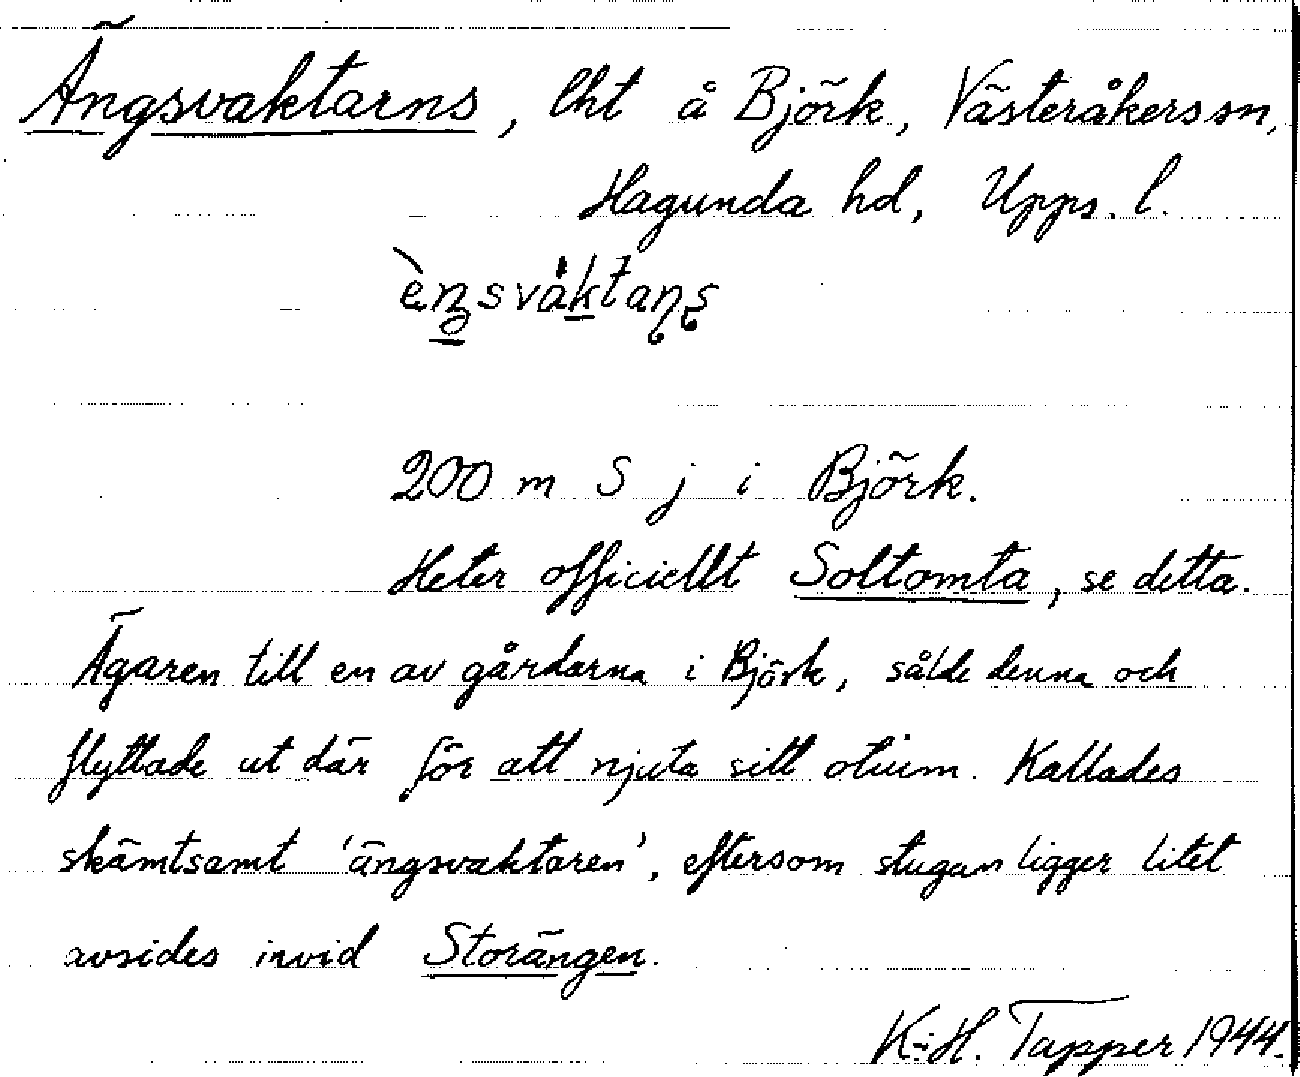 Ängsvaktarns, lht å Björk, Västeråkers sn,
Hagunda hd, Upps. l.
200 m S j i Björk.
Heter officiellt Soltomta, se detta.
Ägaren till en av gårdarna i Björk, sålde denna och
flyttade ut där för att njuta sitt otium. Kallades
skämtsamt 'ängsvaktaren', eftersom stugan ligger litet
avsides invid Storängen.
K-H. Tapper 1944.